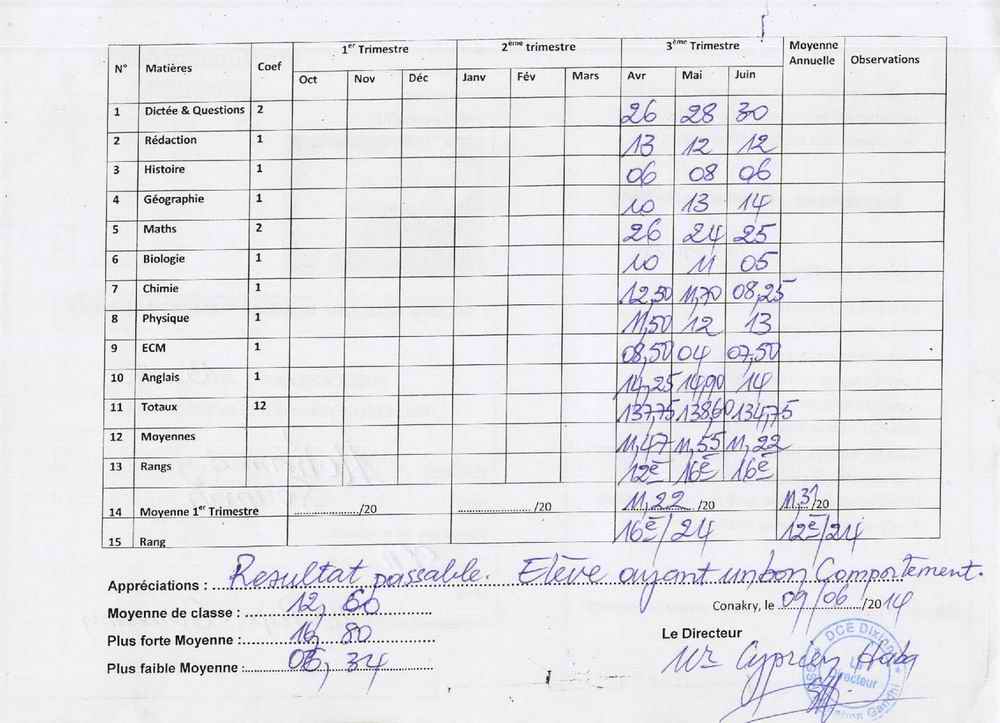 N° Matières Coef 1er Trimestre 2ème trimestre 3ème Trimestre Moyenne Annuelle Observations
Oct Nov Déc Janv Fév Mars Avr Mai Juin
1 Dictée & Questions 2 26 28 30
2 Rédaction 1 13 12 12
3 Histoire 1 06 08 06
4 Géographie 1 10 13 14
5 Maths 2 26 24 25
6 Biologie 1 10 11 05
7 Chimie 1 12,50 11,70 08,25
8 Physique 1 11,50 12 13
9 ECM 1 08,50 04 07,50
10 Anglais 1 14,25 14,90 14
11 Totaux 12 137,75 138,60 134,75
12 Moyennes 11,47 11,55 11,22
13 Rangs 12è 16è 16è
14 Moyenne 1er Trimestre ....................../20 ......................... /20 11,22 /20 11,31/20
15 Rang 16è/24 12è/24
Appréciations : Resultat passable. Elève ayant un bon Comportement.
Moyenne de classe : 12,60
Conakry, le 09/06/2014
Plus forte Moyenne : 16,80
Le Directeur
Plus faible Moyenne : 34
Mr Cyprien
DCE Dixinn
Le Directeur
Gandhi